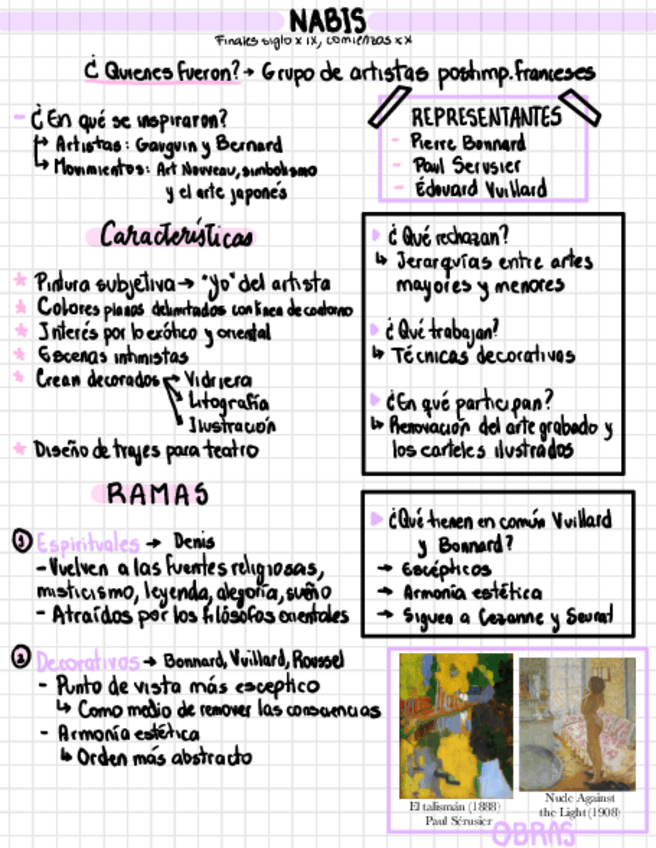 NABIS
Finales siglo XIX, comienzos XX
¿Quienes fueron? → Grupo de artistas postimp. franceses
- ¿En qué se inspiraron?
↳ Artistas: Gauguin y Bernard
↳ Movimientos: Art Nouveau, simbolismo
y el arte japonés
REPRESENTANTES
- Pierre Bonnard
- Paul Serusier
- Édouard Vuillard
Características
* Pintura subjetiva → "yo" del artista
* Colores planos delimitados con linea de contorno
* Interés por lo exótico y oriental
* Escenas intimistas
* Crean decorados → Vidriera
Litografía
Ilustración
* Diseño de trajes para teatro
¿Qué rechazan?
↳ Jerarquías entre artes
mayores y menores
¿Qué trabajan?
↳ Técnicas decorativas
¿En qué participan?
↳ Renovación del arte grabado y
los carteles ilustrados
RAMAS
1 Espirituales → Denis
- Vuelven a las fuentes religiosas,
misticismo, leyenda, alegoría, sueño
- Atraídos por los filósofos orientales
2 Decorativos → Bonnard, Vuillard, Roussel
- Punto de vista más esceptico
↳ Como medio de remover las consciencias
- Armonía estética
↳ Orden más abstracto
¿Qué tienen en común Vuillard
y Bonnard?
→ Escépticos
→ Armonía estética
→ Siguen a Cezanne y Seurat
El talismán (1888)
Paul Sérusier
Nude Against
the Light (1908)
OBRAS